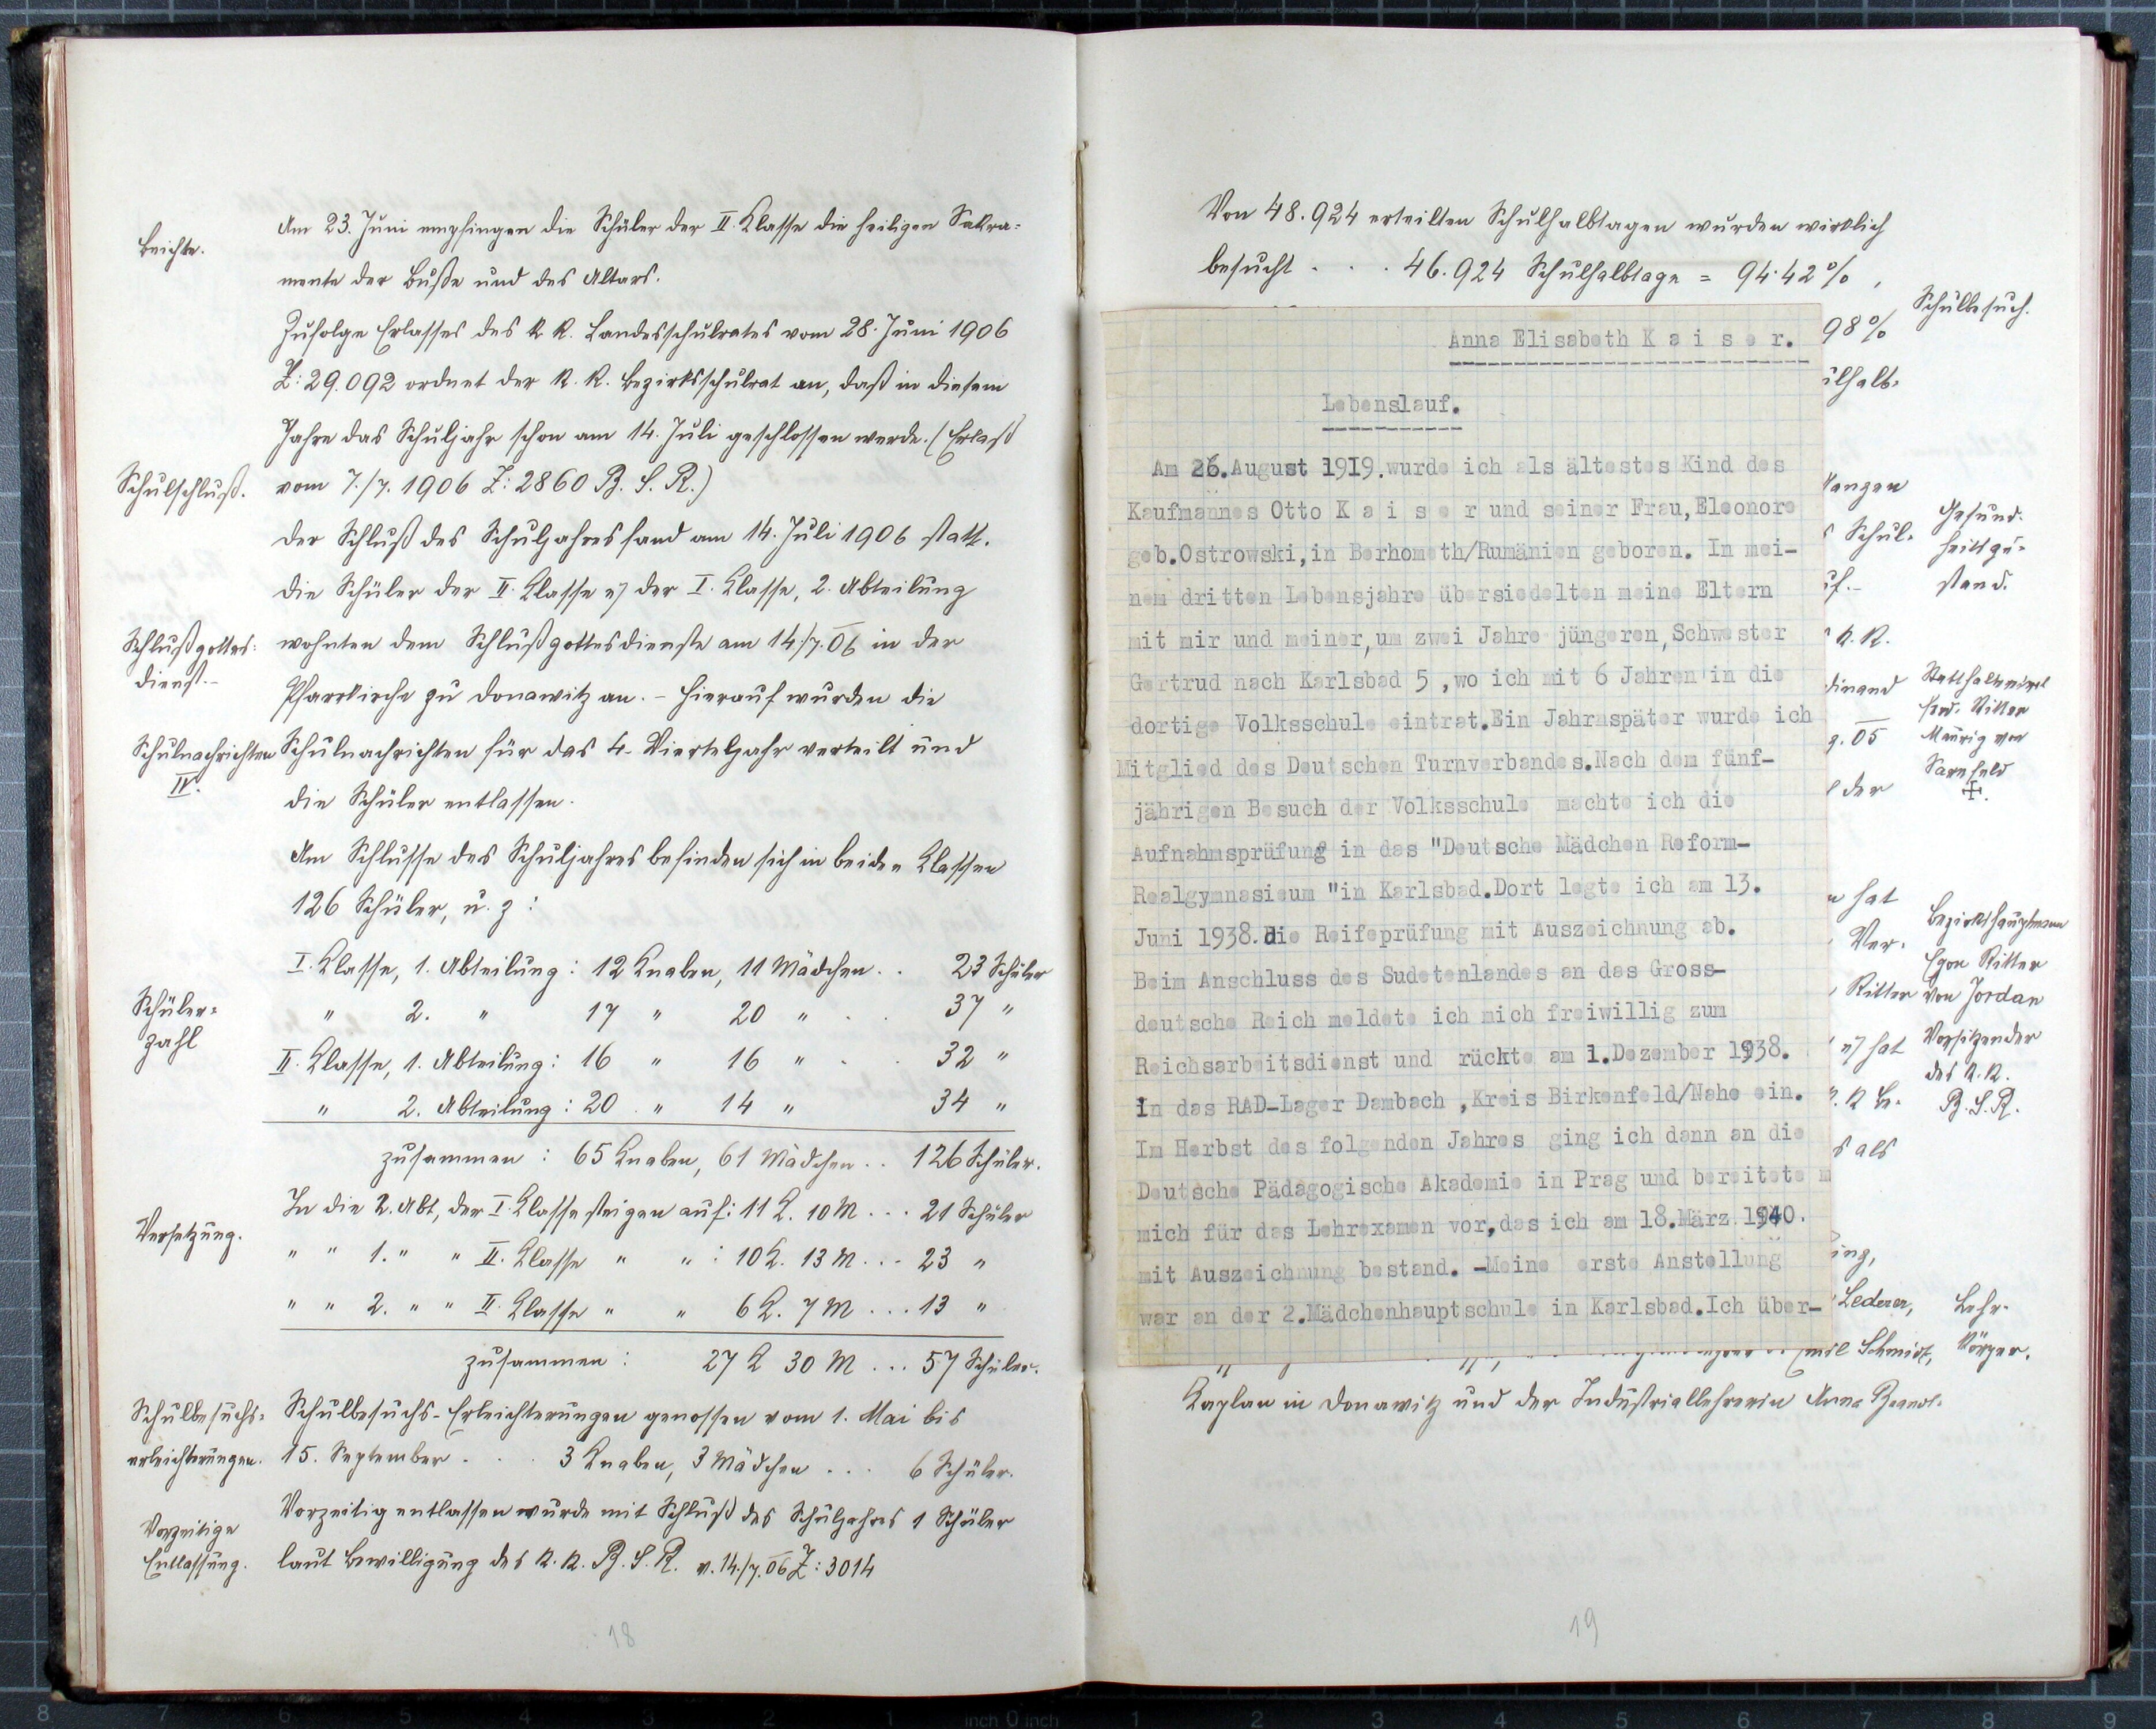 Beichte.
Am 23. Juni empfingen die Schüler der II. Klasse die heiligen Sakra-
mente der Buße und des Altars.
Zufolge Erlasses des k. k. Landesschulrates vom 28. Juni 1906
Z: 29.092 ordnet der k. k. Bezirksschulrat an, daß in diesem
Jahre das Schuljahr schon am 14. Juli geschlossen werde. (Erlaß
Schulschluß.
vom 7./7. 1906 Z: 2860 B. S. R.)
Der Schluß des Schuljahres fand am 14. Juli 1906 statt.
Die Schüler der II. Klasse u. der I. Klasse, 2. Abteilung
Schlußgottes-
dienst.-
wohnten dem Schlußgottesdienste am 14./7. 06 in der
Pfarrkirche zu Donawitz an. – Hierauf wurden die
Schulnachrichten
IV.
Schulnachrichten für das 4. Vierteljahr verteilt und
die Schüler entlassen.
Am Schlusse des Schuljahres befinden sich in beiden Klassen
126 Schüler, u. z:
I. Klasse, 1. Abteilung: 12 Knaben, 11 Mädchen . . 23 Schüler
Schüler-
zahl
" 2. " 17 " 20 " . . 37 "
II. Klasse, 1. Abteilung: 16 " 16 " . . 32 "
" 2. Abteilung: 20 " 14 " 34 "
zusammen: 65 Knaben, 61 Mädchen . . 126 Schüler.
Versetzung.
In die 2. Abt, der I. Klasse steigen auf: 11 K. 10 M . . . 21 Schüler
" " 1. " " II. Klasse " " : 10 K. 13 M . . . 23 "
" " 2. " " II. Klasse " " 6 K. 7 M . . . 13 "
zusammen: 27 K 30 M . . . 57 Schüler.
Schulbesuchs-
erleichterungen.
Schulbesuchs-Erleichterungen genossen vom 1. Mai bis
15. September . . . 3 Knaben, 3 Mädchen . . . 6 Schüler.
Vorzeitige
Entlassung.
Vorzeitig entlassen wurde mit Schluß des Schuljahres 1 Schüler
laut Bewilligung des k. k. B. S. R. v. 14./7. 06 Z: 3014
18
Von 48.924 erteilten Schulhalbtagen wurden wirklich
besucht . . . 46.924 Schulhalbtage = 94·42%,
98%
Schulbesuch.
Schul-
Gesund-
heitszu-
stand.
k. k.
dinand
Statthaltereirat
Ferd. Ritter
05
Maurig von
Sarnfeld
der
✝.
hat
Bezirkshauptmann
Ver-
Egon Ritter
Ritter
von Jordan
u. hat
Vorsitzender
des k. k.
B. S. R.
als
Lederer,
Lehr-
Emil Schmidt,
körper.
Kaplan in Donawitz und der Industriallehrerin Anna
19
Anna Elisabeth K a i s e r.
Lebenslauf.
Am 26.August 1919.wurde ich als ältestes Kind des
Kaufmannes Otto K a i s e r und seiner Frau,Eleonore
geb.Ostrowski,in Berhometh/Rumänien geboren. In mei-
nem dritten Lebensjahre übersiedelten meine Eltern
mit mir und meiner,um zwei Jahre jüngeren,Schwester
Gertrud nach Karlsbad 5 ,wo ich mit 6 Jahren in die
dortige Volksschule eintrat.Ein Jahrnspäter wurde ich
Mitglied des Deutschen Turnverbandes.Nach dem fünf-
jährigen Besuch der Volksschule machte ich die
Aufnahmsprüfung in das "Deutsche Mädchen Reform-
Realgymnasieum "in Karlsbad.Dort legte ich am 13.
Juni 1938.die Reifeprüfung mit Auszeichnung ab.
Beim Anschluss des Sudetenlandes an das Gross-
deutsche Reich meldete ich mich freiwillig zum
Reichsarbeitsdienst und rückte am 1.Dezember 1938.
in das RAD-Lager Dambach ,Kreis Birkenfeld/Nahe ein.
Im Herbst des folgenden Jahres ging ich dann an die
Deutsche Pädagogische Akademie in Prag und bereitete m
mich für das Lehrexamen vor,das ich am 18.März 1940.
mit Auszeichnung bestand. -Meine erste Anstellung
war an der 2.Mädchenhauptschule in Karlsbad.Ich über-
8 7 6 5 4 3 2 1 inch 0 inch 1 2 3 4 5 6 7 8 9